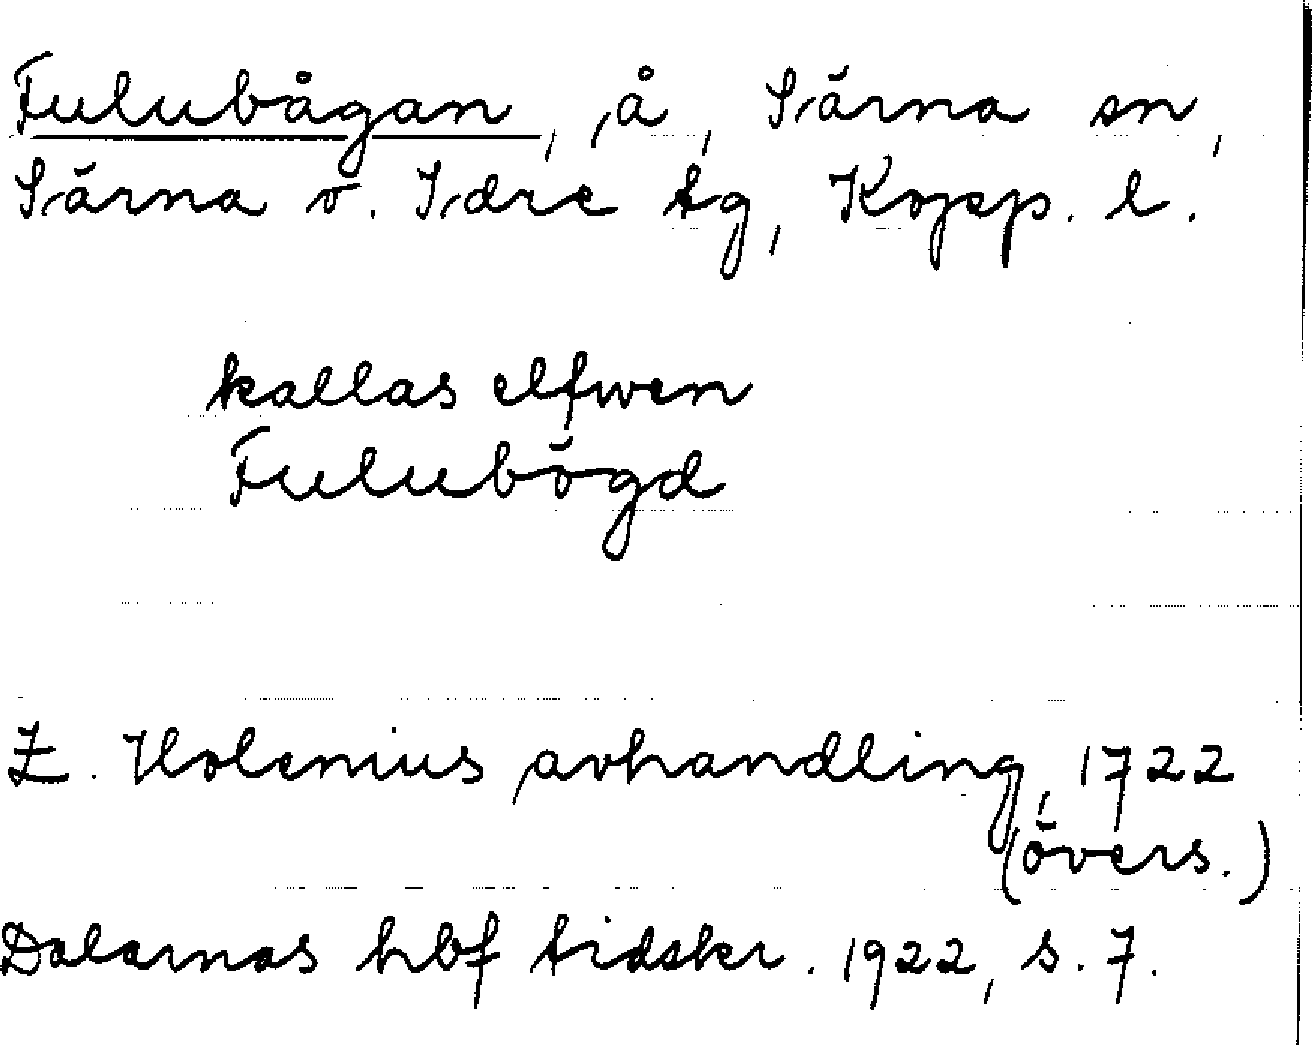 Fulubågan, å, Särna sn,
Särna o. Idre tg, Kopp. l.
kallas elfwen
Fulubögd
Z. Holenius avhandling, 1722
(övers.)
Dalarnas hbf tidskr. 1922, s. 7.